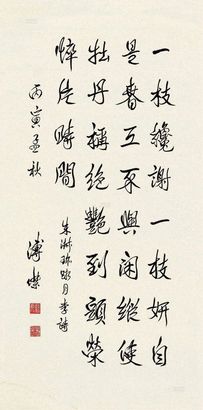 一枝纔謝一枝妍自
是春工不與閑縱使
牡丹稱絕艷到頭榮
悴片時間
朱淑珎詠月季詩
丙寅孟秋
溥傑